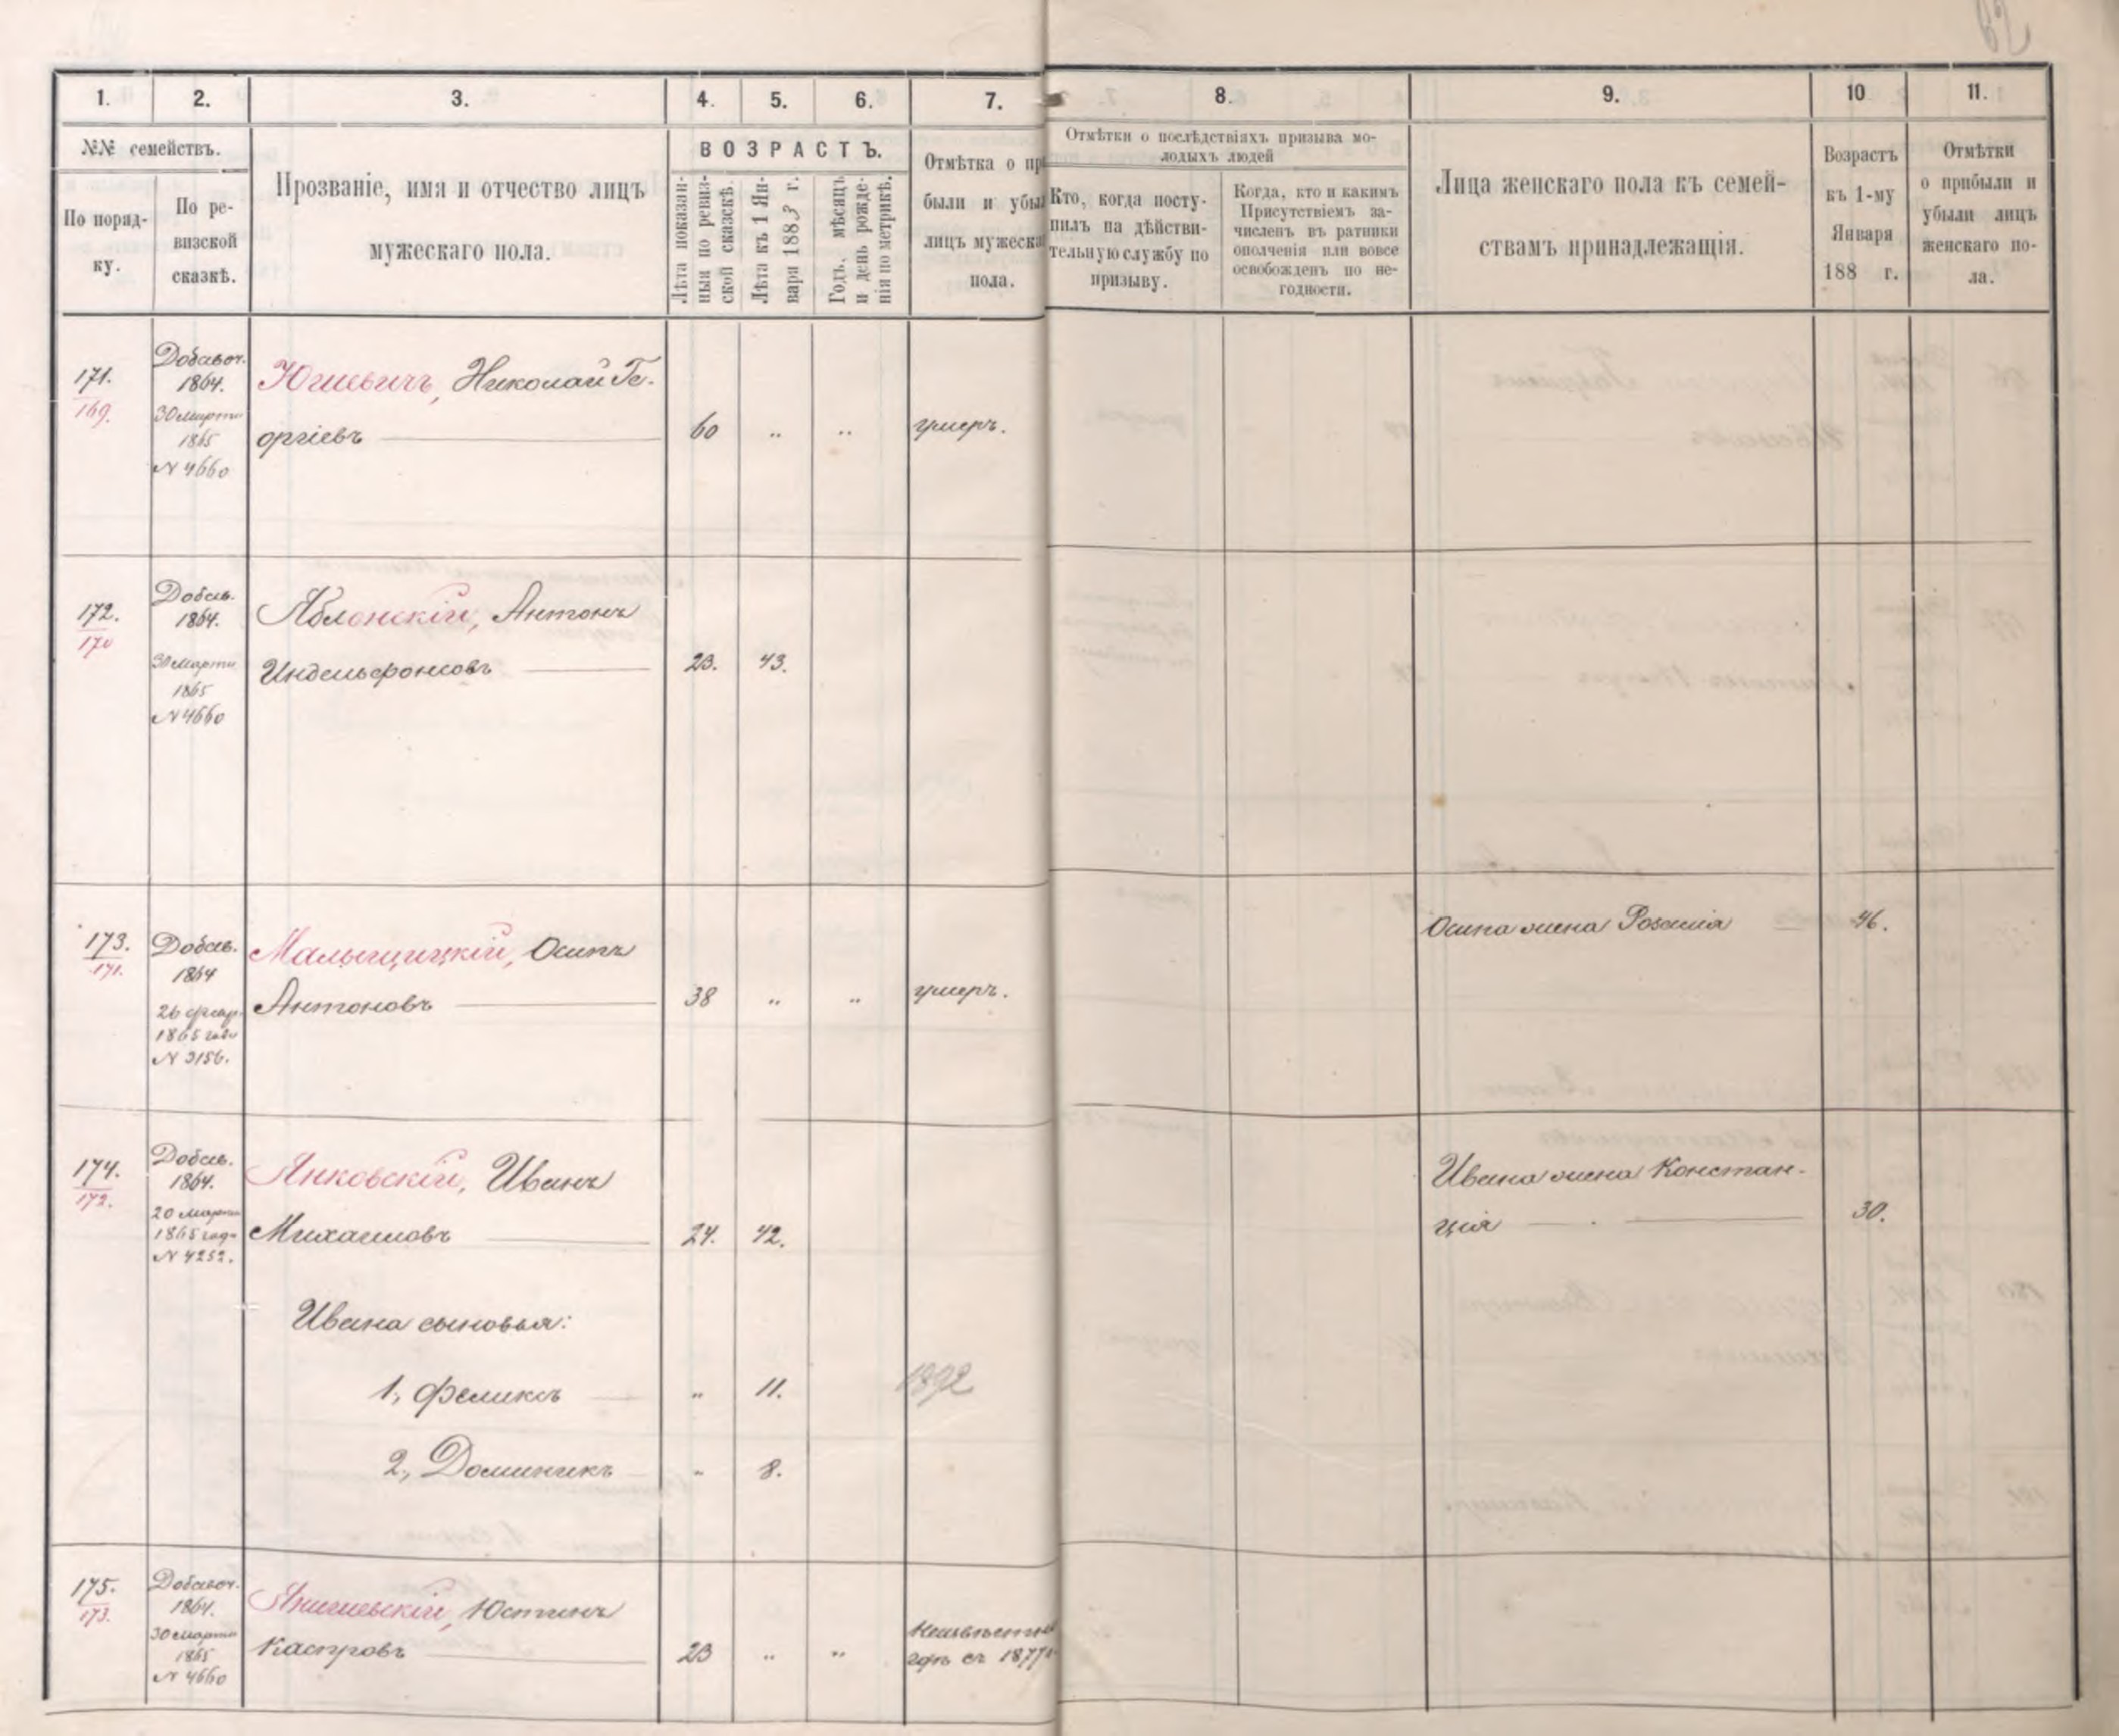 1. 2. 3. 4. 5. 6. 7. 8. 9. 10 11.
№№ семействъ.
По порядку.
По ревизской сказкѣ.
Прозваніе, имя и отчество лицъ
мужескаго пола.
ВОЗРАСТЪ.
Лѣта показан-
ныя по ревиз-
ской сказкѣ.
Лѣта къ 1 Ян-
варя 1883 г.
Годъ, мѣсяцъ
и день рожде-
нія по метрикѣ.
Отмѣтка о при
были и убыл
лицъ мужеска
пола.
Отмѣтки о послѣдствіяхъ призыва мо-
лодыхъ людей
Кто, когда посту-
пилъ на дѣйстви-
тельную службу по
призыву.
Когда, кто и какимъ
Присутствіемъ за-
численъ въ ратники
ополченія или вовсе
освобожденъ по не-
годности.
Лица женскаго пола къ семей-
ствамъ принадлежащія.
Возрастъ
къ 1-му
Января
188 г.
Отмѣтки
о прибыли и
убыли лицъ
женскаго по-
ла.
171.
169.
Добавоч.
1864.
30 марта
1865
N 4660
Юшевичъ, Николай Ге-
оргіевъ 60 „ „ умеръ.
172.
170
Добав.
1864.
30 марта
1865
N 4660
Яблонскій, Антонъ
Индельфонсовъ 23. 43.
173.
171.
Добав.
1864
26 февр.
1865 года
N 3156.
Малыщицкій, Осипъ
Антоновъ 38 „ „ умеръ.
Осипа жена Розалія 46.
174.
172.
Добав.
1864.
20 марта
1865 года
N 4252.
Янковскій, Иванъ
Михаиловъ 24. 42.
Ивана жена Констан-
ція 30.
Ивана сыновья:
1, Феликсъ „ 11. 1892
2, Доминикъ „ 8.
175.
173.
Добавоч.
1864.
30 марта
1865
N 4660
Юстинъ
Каспровъ 23 „ „
Неизвѣстно
гдѣ съ 1877